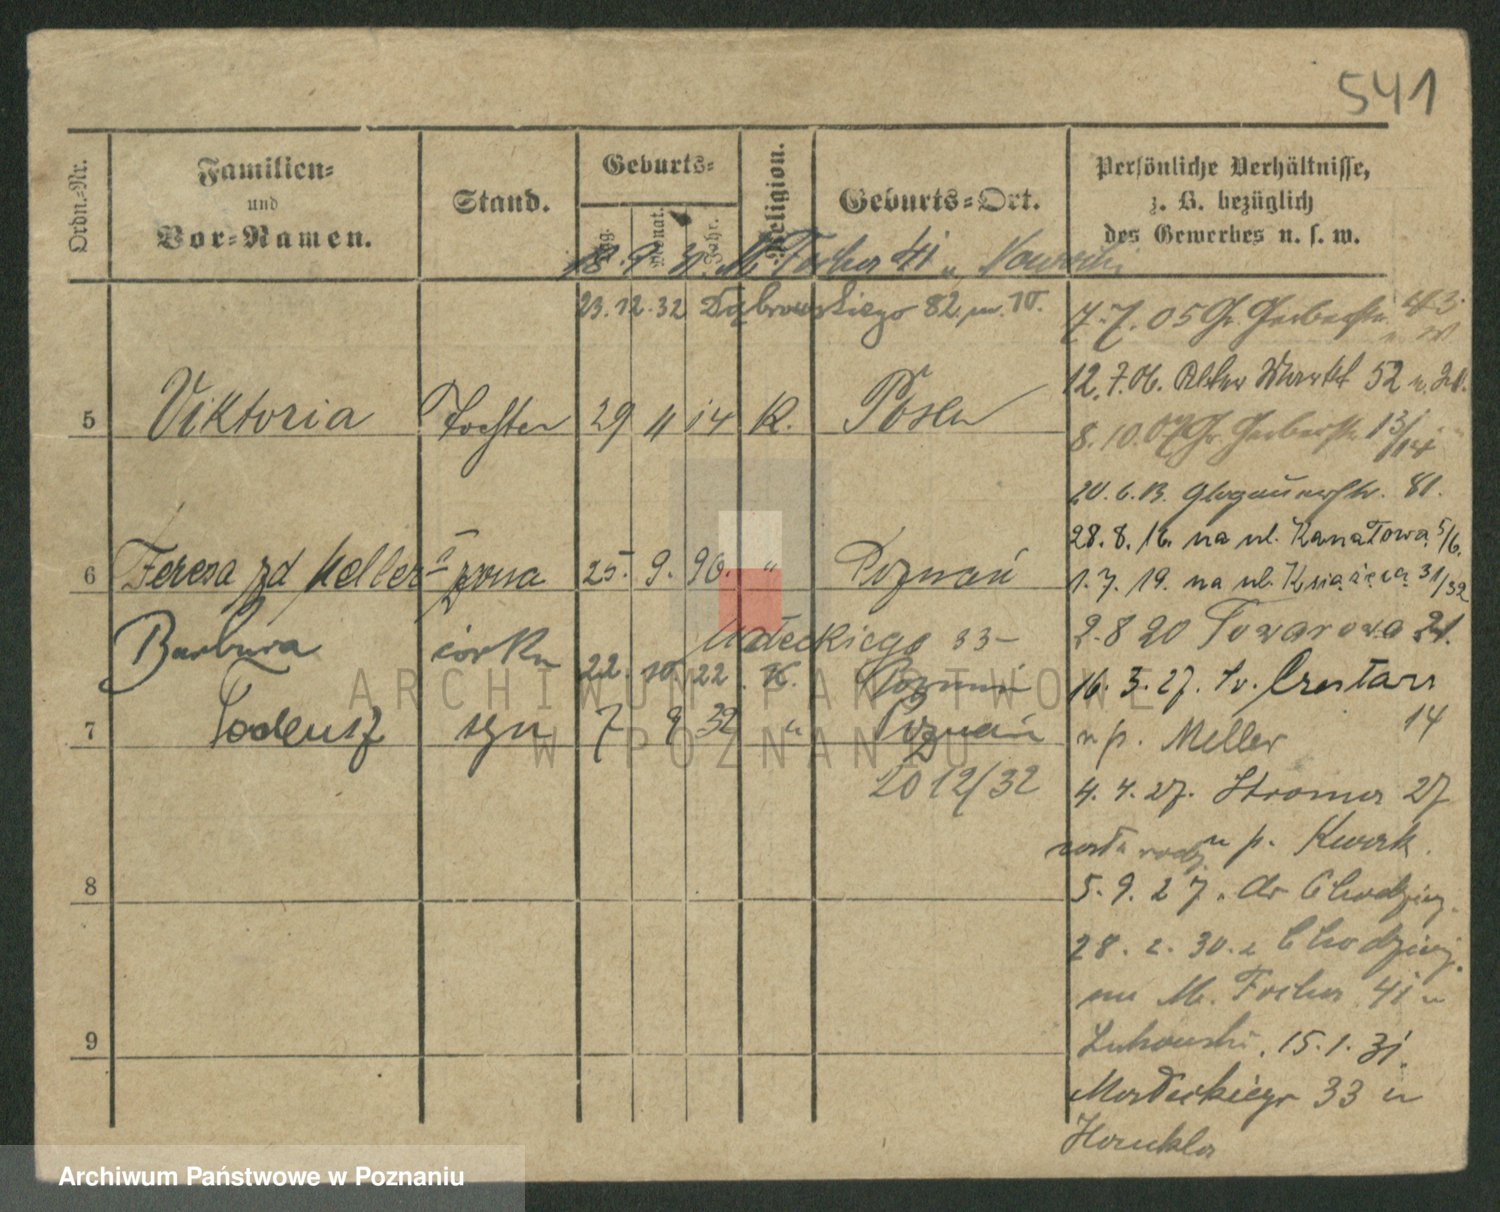 541
Ordn.-Nr.
Familien-
und
Vor-Namen.
Stand.
Geburts-
Tag.
Monat.
Jahr.
Religion.
Geburts-Ort.
Persönliche Verhältnisse,
z. B. bezüglich
des Gewerbes u. s. w.
23.12.32 Dąbrowskiego 82 m. 10.
7.7.05 Gr. Gerberstr.
12.7.06. Alter Markt 52
8.10.07 Gr. Gerberstr. 13/14
5 Viktoria Tochter 29 11 14 K. Posen
20.6.13. Glogauerstr. 81.
28.8.16. na ul. Kanałowa 5/6.
6 Teresa zd Meller żona 25. 9. 90. " Poznań
1.7.19. na ul. Książęcą 31/32
Barbara córka 22. 10. 22 K. Poznań
Małeckiego 33
2.8 20 Towarowa 21.
16.3.27. św.
7 Tadeusz syn 7 9 32 " Poznań
u p. Meller 14
20 12/32
4.4.27. Stroma 27
u p. Kwark.
8
5.9.27. do Chodzież.
28.2.30. z Chodzież.
na M. Focha 41 u
9
15.1.31.
Małeckiego 33 u
ARCHIWUM PAŃSTWOWE
W POZNANIU
Archiwum Państwowe w Poznaniu